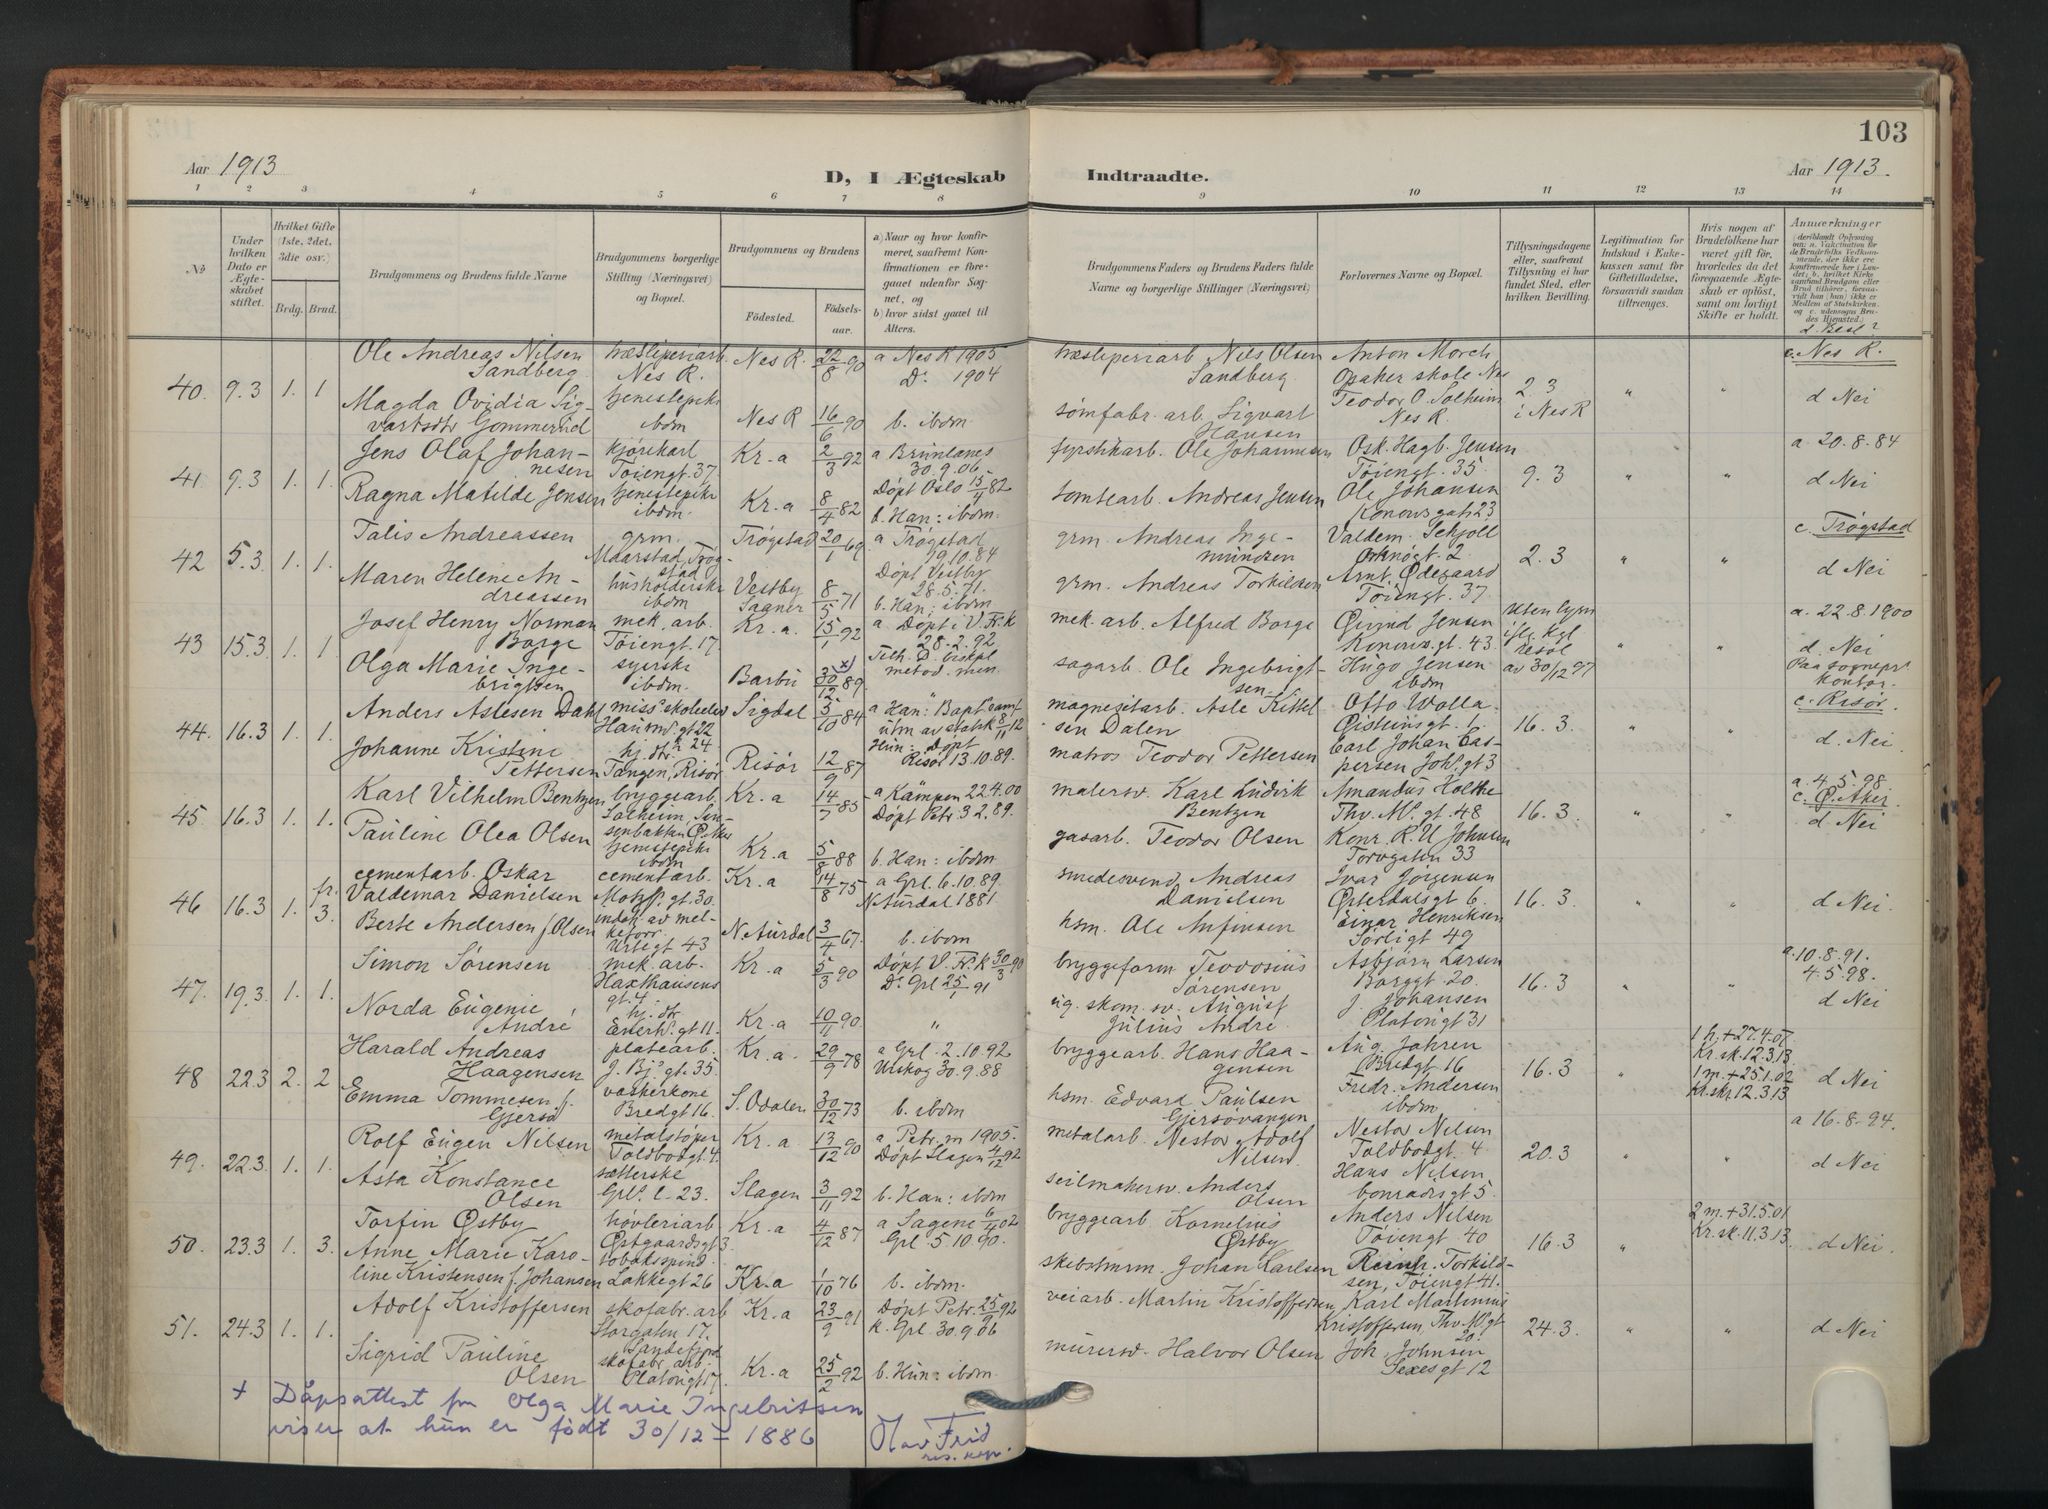 103
Aar 1913
D, I Ægteskab Indtraadte.
Aar 1913.
1 2 3 4 5 6 7 8 9 10 11 12 13 14
No
Under hvilken Dato er Ægteskabet stiftet.
Hvilket Gifte (1ste, 2det, 3die osv.)
Brdg. Brud.
Brudgommens og Brudens fulde Navne
Brudgommens borgerlige Stilling (Næringsvei) og Bopæl.
Brudgommens og Brudens
Fødested. Fødselsaar.
a) Naar og hvor konfirmeret, saafremt Konfirmationen er foregaaet udenfor Sognet, og
b) hvor sidst gaaet til Alters.
Brudgommens Faders og Brudens Faders fulde Navne og borgerlige Stillinger (Næringsvei)
Forlovernes Navne og Bopæl.
Tillysningsdagene eller, saafremt Tillysning ei har fundet Sted, efter hvilken Bevilling.
Legitimation for Indskud i Enkekassen samt for Giftetilladelse, forsaavidt saadan tiltrænges.
Hvis nogen af Brudefolkene har været gift før, hvorledes da det foregaaende Ægteskab er opløst, samt om lovligt Skifte er holdt.
Anmærkninger
40. 9.3 1. 1
Ole Andreas Nilsen Sandberg
Nes R.
Nes R. 22/8 90
a Nes R 1905
Do 1904
Nils Olsen Sandberg
Anton Morch
Opaker skole Nes
2.3 i Nes R
c. Nes R.
d Nei
Magda Ovidia Sigvartsdtr Gommerud
tjenestepike ibdm
Nes R 16/6 90
b. ibdm
sömfabr. arb. Sigvart Hansen
Teodor O. Solheim
Nes R.
41 9.3 1. 1.
Jens Olaf Johannesen
kjørekarl
Tøiengt. 37.
Kr.a 2/3 92
a Brunlanes
30.9.06.
fyrstikarb. Ole Johannesen
Osk. Hagb. Jensen
Tøiengt. 35.
9.3
a. 20.8.84
d Nei
Ragna Matilde Jensen
tjenestepike ibdm.
Kr.a 8/4 82
Døpt Oslo 15/4 82
b. Han: ibdm.
tomtearb. Andreas Jensen
Ole Johansen
Konowsgate 23
42 5.3. 1. 1.
Talis Andreassen
grm.
Maarstad, Trøgstad
Trøgstad 20/1 69
a Trøgstad
19.10.84
grm. Andreas Ingemundsen
Valdem. Sekjoll
Orknøgt. 2.
2.3
c. Trøgstad
d Nei
Maren Helene Andreassen
husholderske ibdm
Vestby 8/5 71
Døpt Vestby
28.5.71.
b. Han: ibdm
grm. Andreas Torkildsen
Arnt Ødegaard
Tøiengt. 37.
43 15.3. 1. 1
Josef Henry Norman Borge
mek. arb.
Tøiengt. 17.
Kr.a. 15/1 92
a Døpt i V. Fr.k
28.2.92
mek. arb. Alfred Borge
Øivind Jensen
Konowsgt. 43
uten lysn
iflg. Kgl resol
av 30/12 97
a. 22.8.1900
d. Nei
Paa sognepr kontor.
Olga Marie Ingebrigtsen
syerske ibdm.
Barbu 30/12 89 x)
metod. men.
sagarb. Ole Ingebrigtsen
Hugo Jensen
ibdm
44. 16.3 1. 1.
Anders Aslesen Dahl
Hausm. gt 22
Sigdal 5/10 84
a Han: Bapt samf
utm av statsk 8/11 12
magnesitarb. Asle Kittelsen Dalen
Otto Wolla
Øisteinsgt. 1.
16.3.
c. Risør.
d. Nei
Johanne Kristine Pettersen
hj. dtr.
Tangen, Risør
Risør 12/9 87
Hun: Døpt
Risør 13.10.89.
matros Teodor Pettersen
Carl Johan Caspersen
45. 16.3. 1. 1.
Karl Vilhelm Bentzen
bryggearb
Kr.a 14/7 85
a Kampen 22.4.00
malersv. Karl Ludvik Bentzen
Amandus Holthe
Thv. M. gt. 48
16.3.
a. 4.5.98.
c. Ø. Aker
d Nei
Pauline Olea Olsen
tjenestepike ibdm
Kr.a 5/8 88
Døpt Petr. 3.2.89.
b. Han: ibdm
gasarb. Teodor Olsen
Konr. R. U Johnsen
Torvgaten 33
46 16.3 1. fr. 3.
cementarb. Oskar Valdemar Danielsen
cementarb.
Motzf. gt. 30.
Kr.a 14/8 75
a Grl. 6.10.89.
N. Aurdal 1881.
smedesvend Andreas Danielsen
Ivar Jørgensen
Østerdalsgt 6.
16.3.
d Nei.
Berte Andersen f. Olsen
indeh av melkeforr.
Urtegt 43
N. Aurdal 3/4 67.
b. ibdm
hsm. Ole Anfinsen
Einar Henriksen
Sorligt 49
47. 19.3. 1. 1.
Simon Sørensen
mek. arb.
Haxthausens gt. 4.
Kr.a 5/3 90
Døpt V. Fr.k 30/3 90
bryggeform Teodosius Sørensen
Asbjørn Larsen
Borggt. 20.
16.3
a. 10.8.91.
4.5.98.
d Nei
Norda Eugenie André
hj. dtr
Enerh. gt 11.
Kr.a 10/11 90.
Do Grl 25/1 91
ug. skom. sv. August Julius André
J. Johansen
Platousgt 31
48 22.3 2. 2
Harald Andreas Haagensen
platearb.
J. Bj. gt. 35.
Kr.a. 29/9 78
a Grl. 2.10.92
bryggearb. Hans Haagensen
Aug. Jahren
Bredgt 16
16.3
1 h. + 27.4.07
Kr.sk. 12.3.13.
1 m. + 25.1.02
Kr.skr. 12.3.13
d Nei
Emma Tommesen f. Gjersø
vaskerkone
Bredgt 16.
S. Odalen 30/12 73
Urskog 30.9.88
b. ibdm
hsm. Edvard Paulsen Gjersøvangen
Fredr. Andersen
ibdm
49. 22.3. 1. 1.
Rolf Eugen Nilsen
metalstøper
Toldbodgt 4.
Kr.a. 13/12 90
a Petr. m 1905.
metalarb. Nestor Adolf Nilsen.
Nestor Nilsen
Toldbodgt. 4
20.3
a 16.8.94.
d Nei
Asta Konstance Olsen
sætterske
Grl. l. 23.
Slagen 3/11 92
Døpt Slagen 4/12 92
b. Han: ibdm
seilmakersv. Anders Olsen
Hans Nilsen
Conradisgt 5.
50. 23.3 1. 3.
Torfin Østby
høvleriarb
Østgaardsgt 3.
Kr.a 4/12 87
a Sagene 6/4 02
bryggearb. Kornelius Østby
Anders Nilsen
Tøiengt. 40
16.3
2 m. + 31.5.01
Kr.sk. 11.3.13.
d Nei.
Anne Marie Karoline Kristensen f. Johansen
tobaksspind.
Lakkegt 26
Kr.a 1/10 76
Grl 5.10.90.
b. ibdm.
Johan Karlsen
Reinh. Torkildsen, Tøiengt 41.
51. 24.3 1. 1.
Adolf Kristoffersen
skofabr. arb
Storgaten 17.
Sandefjord
Kr.a 23/9 91
Døpt Petr. 25/9 92
k. Grl. 30.9.06
veiarb. Martin Kristoffersen
Karl Martinius Kristoffersen, Thv. M. gt 20.
24.3.
d Nei
Sigrid Pauline Olsen
skofabr. arb.
Platousgt 17.
Kr.a 25/2 92
b. Hun: ibdm.
murersv. Halvor Olsen
Joh. Johnsen
Sexesgt 12
+ Dåpsattest for Olga Marie Ingebritsen
viser at hun er født 30/12 - 1886
Olav Frid
res. kap.